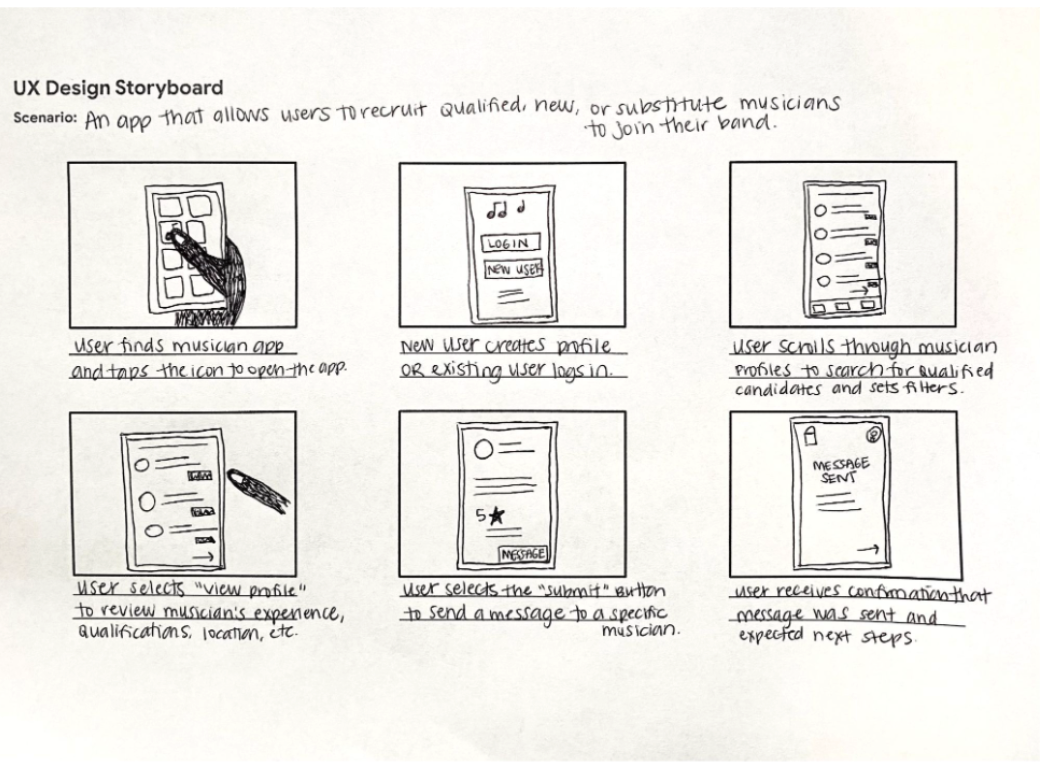 UX Design Storyboard
Scenario: An app that allows users to recruit qualified, new, or substitute musicians
to join their band.
LOGIN
NEW USER
User finds musician app
and taps the icon to open the app.
New user creates profile
OR existing user logs in.
User scrolls through musician
profiles to search for qualified
candidates and sets filters.
5★
MESSAGE
MESSAGE
SENT
User selects "view profile"
to review musician's experience,
qualifications, location, etc.
User selects the "submit" button
to send a message to a specific
musician.
User receives confirmation that
message was sent and
expected next steps.